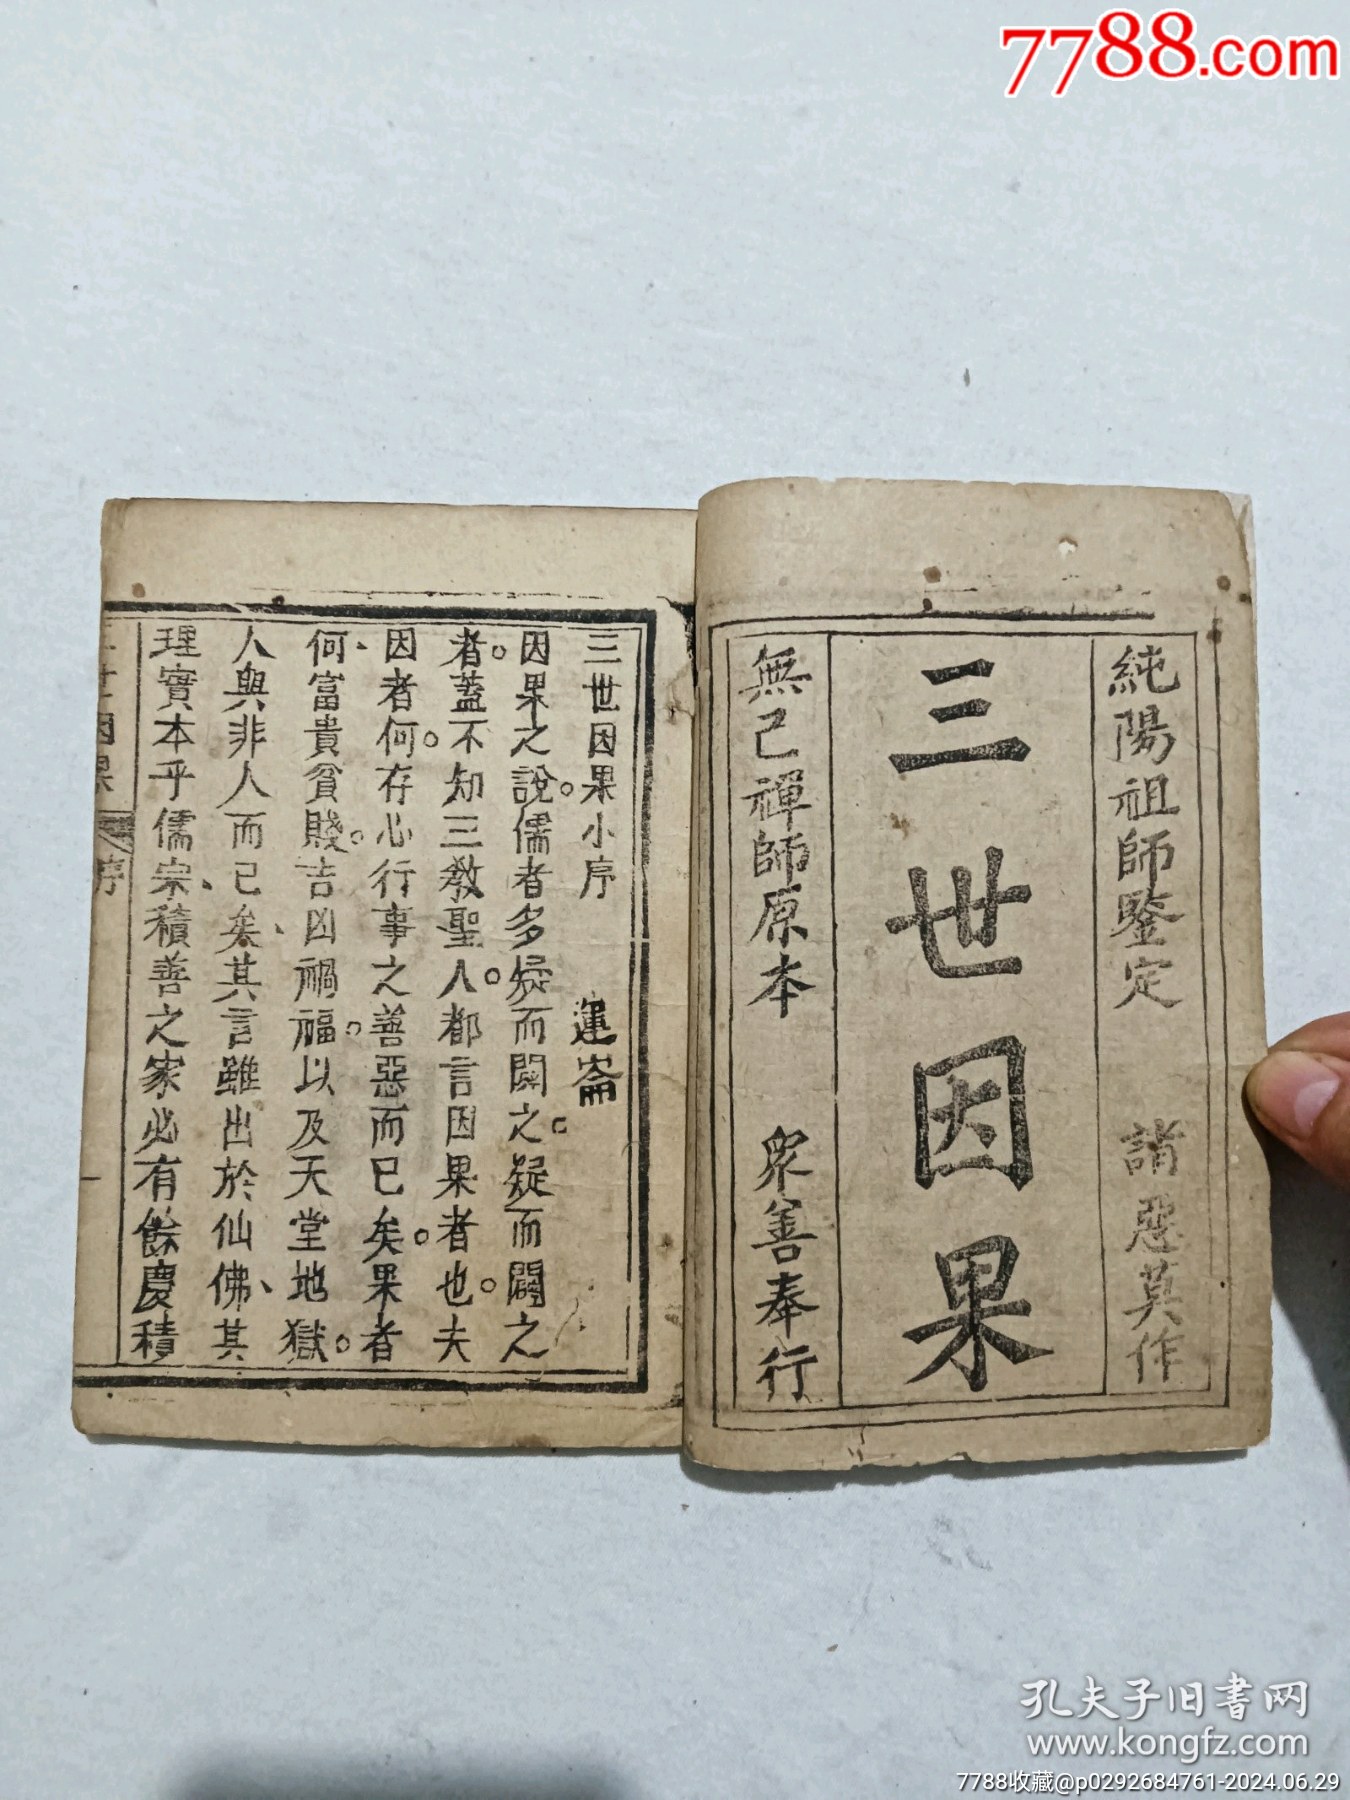 7788.com
純陽祖師鑒定 諸惡莫作
三世因果
無己禪師原本 眾善奉行
三世因果小序 運崙
因果之說。儒者多疑而闢之。疑而闢之
者。蓋不知三教聖人。都言因果者也。夫
因者何。存心行事之善惡而已矣。果者
何、富貴貧賤。吉凶禍福。以及天堂地獄。
人與非人而已矣、其言雖出於仙佛、其
理實本乎儒宗、積善之家必有餘慶積
三世因果 序
孔夫子旧書网
www.kongfz.com
7788收藏@p0292684761-2024.06.29